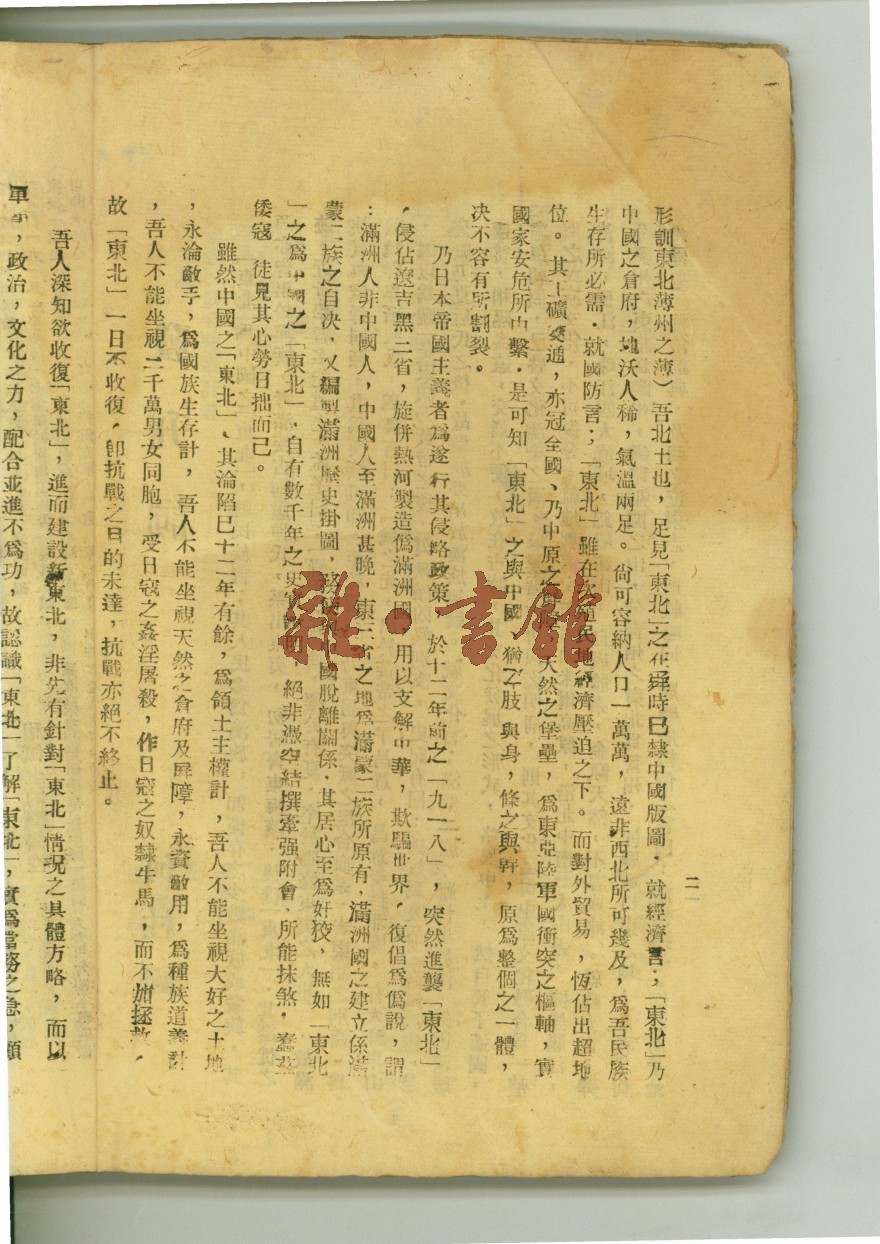 二
形訓東北薄州之薄）吾北土也，足見「東北」之在舜時已隸中國版圖，就經濟言；「東北」乃
中國之倉府，地沃人稀，氣溫兩足。尙可容納人口一萬萬，遠非西北所可幾及，爲吾民族
生存所必需．就國防言；「東北」雖在次殖民地經濟壓迫之下。而對外貿易，恆佔出超地
位。其土礦交通，亦冠全國、乃中原之屏障，天然之堡壘，爲東亞陸軍國衝突之樞軸，實
國家安危所由繫．是可知「東北」之與中國，猶之肢與身，條之與幹，原爲整個之一體，
决不容有所割裂。
乃日本帝國主義者爲遂行其侵略政策 於十二年前之「九一八」，突然進襲「東北」
，侵佔遼吉黑三省，旋併熱河製造僞滿洲國，用以支解中華，欺騙世界，復倡爲僞說，謂
：滿洲人非中國人，中國人至滿洲甚晚，東三省之地爲滿蒙二族所原有，滿洲國之建立係滿
蒙二族之自决，又編製滿洲歷史掛圖，國脫離關係．其居心至爲奸狡，無如「東北
」之爲中國之「東北」．自有數千年之史實，絕非憑空結撰牽强附會，所能抹煞，蠢茲
倭寇 徒見其心勞日拙而已。
雖然中國之「東北」、其淪陷已十二年有餘，爲領土主權計，吾人不能坐視大好之土地
，永淪敵手，爲國族生存計，吾人不能坐視天然之倉府及屏障，永資敵用，爲種族道義計
，吾人不能坐視二千萬男女同胞，受日寇之姦淫屠殺，作日寇之奴隸牛馬，而不加拯救，
故「東北」一日不收復，卽抗戰之目的未達，抗戰亦絕不終止。
吾人深知欲收復「東北」，進而建設新東北，非先有針對「東北」情况之具體方略，而以
軍事，政治，文化之力，配合並進不爲功，故認識「東北」了解「東北」，實爲當務之急，顧
雜·書館